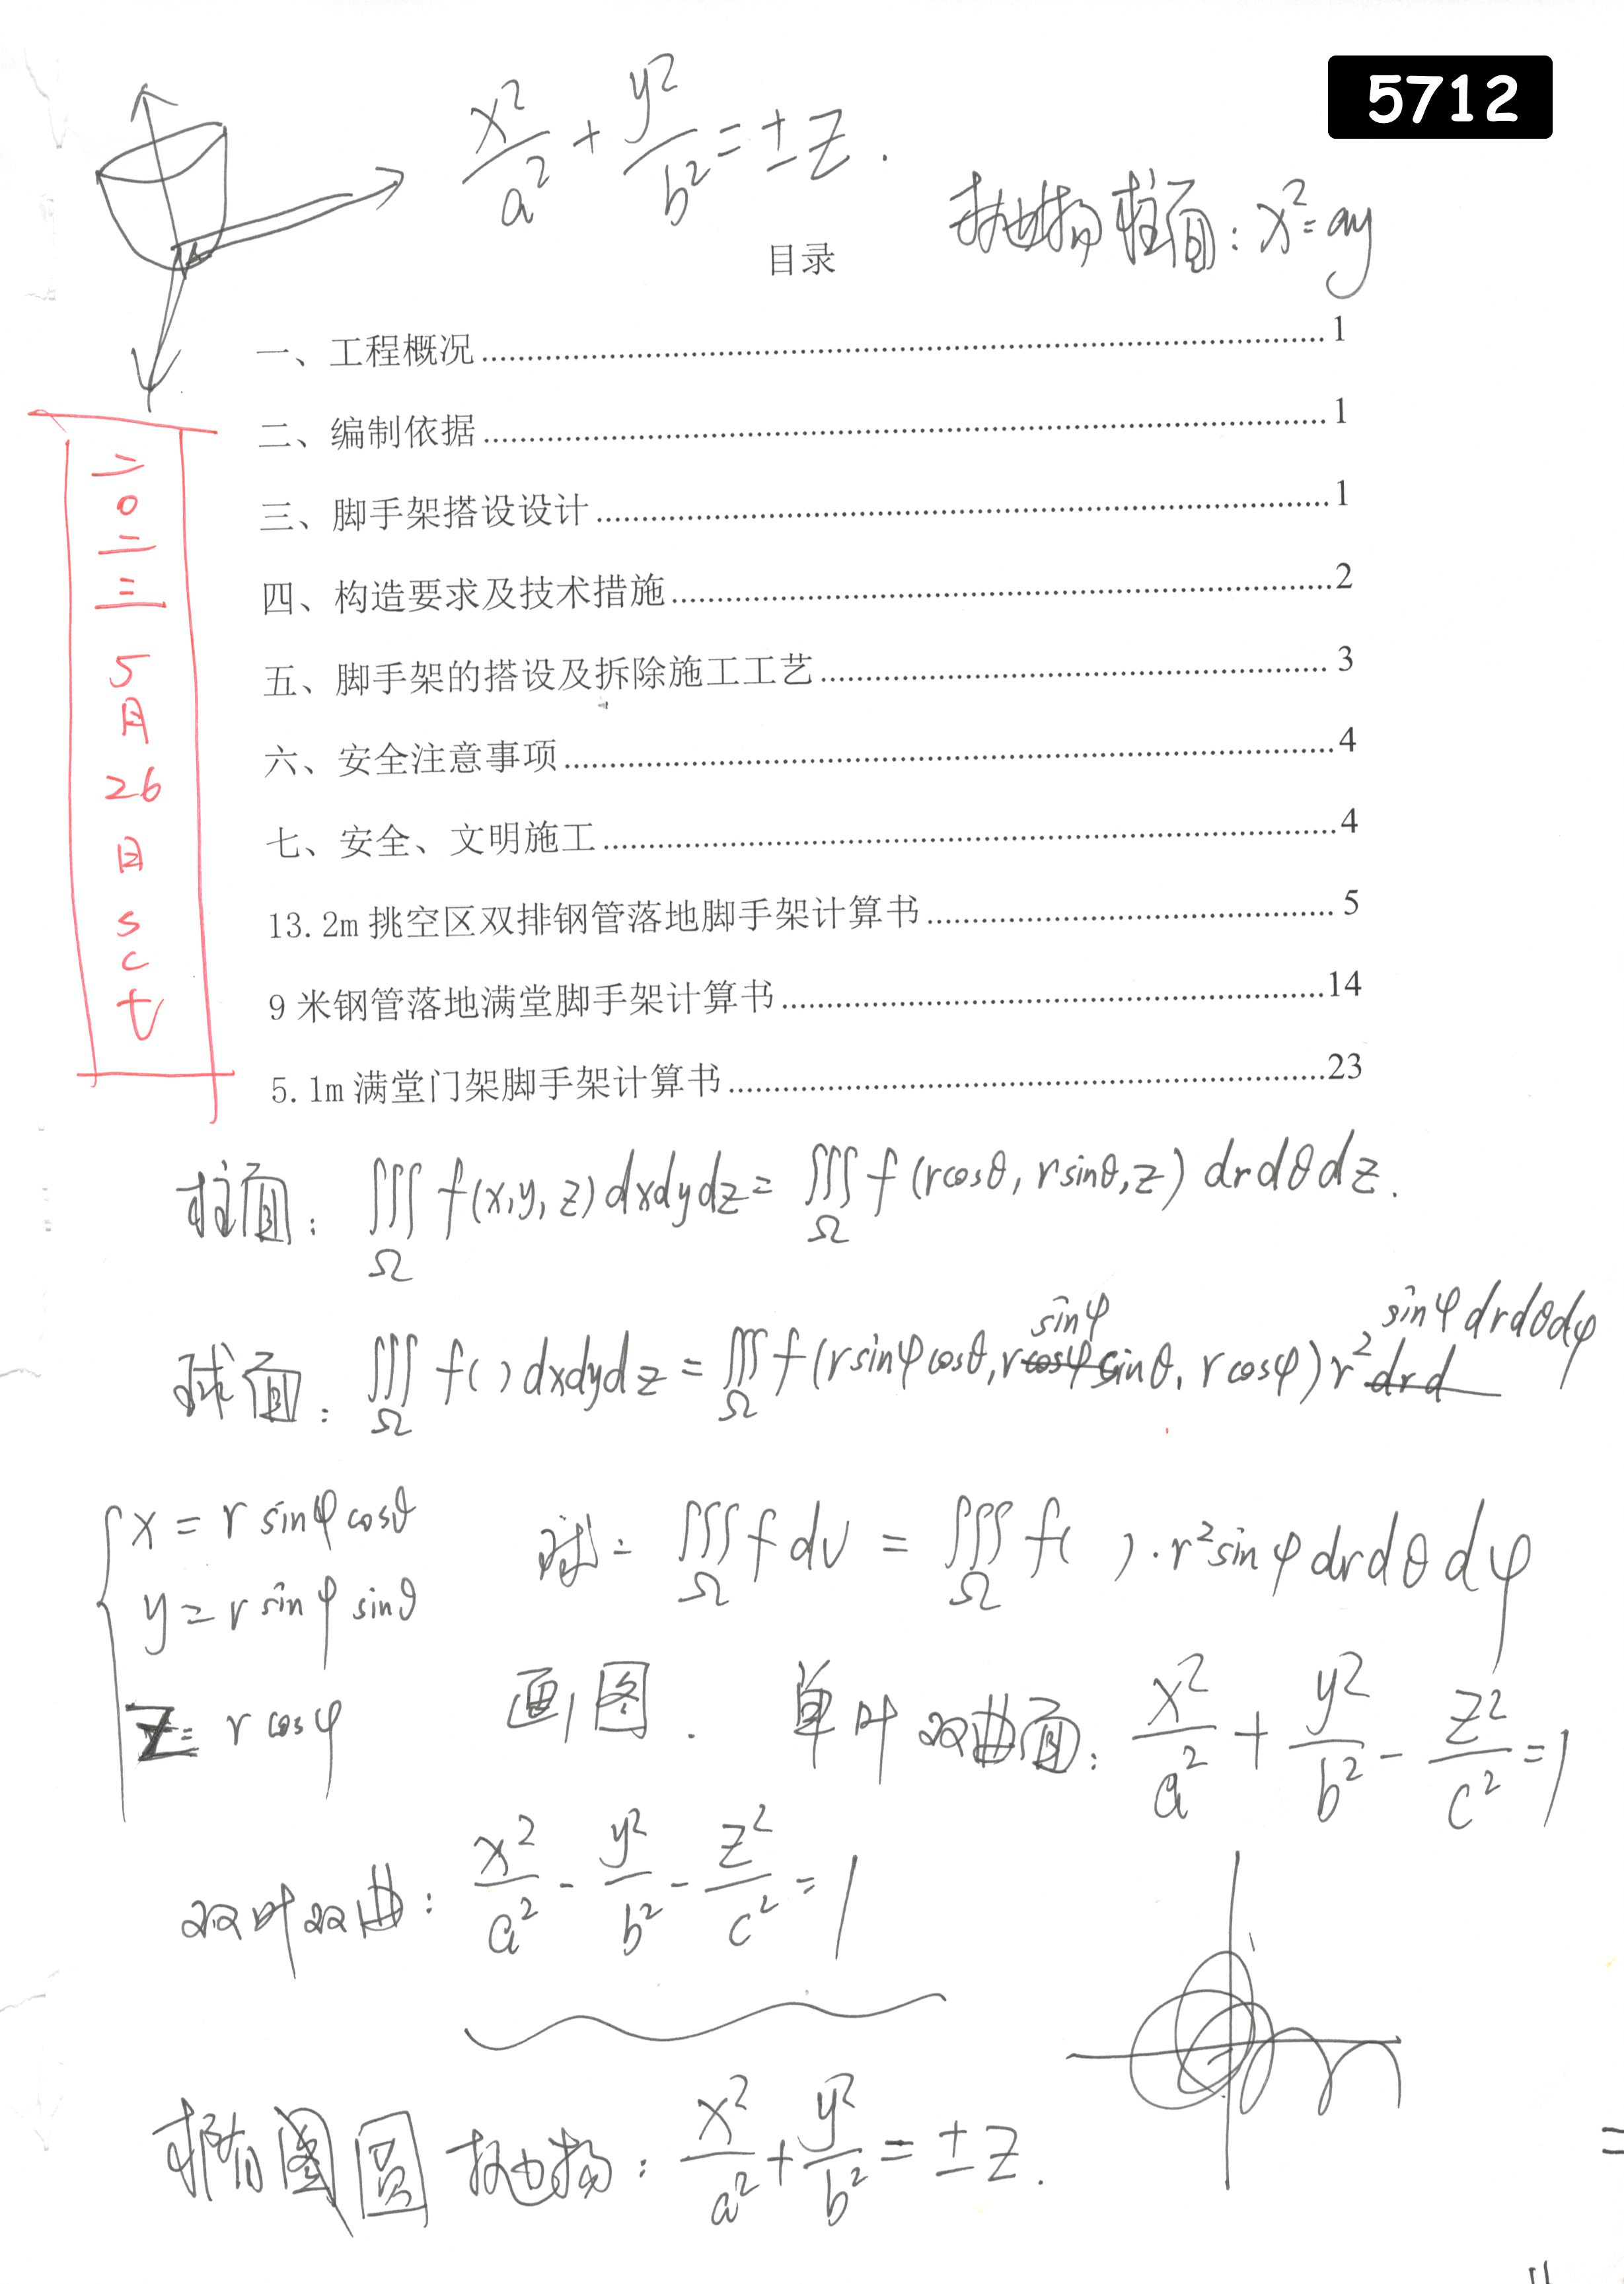 5712
x²/a² + y²/b² = ±z.
抛物柱面: x² = ay
目录
一、工程概况 1
二、编制依据 1
三、脚手架搭设设计 1
四、构造要求及技术措施 2
五、脚手架的搭设及拆除施工工艺 3
六、安全注意事项 4
七、安全、文明施工 4
13.2m 挑空区双排钢管落地脚手架计算书 5
9 米钢管落地满堂脚手架计算书 14
5.1m 满堂门架脚手架计算书 23
二〇二三 5月26日 sct
柱面: ∭Ω f(x,y,z)dxdydz = ∭Ω f(rcosθ, rsinθ, z) drdθdz.
球面: ∭Ω f( )dxdydz = ∭Ω f(rsinφcosθ, rsinφsinθ, rcosφ)r² sinφdrdθdφ
x = r sinφcosθ
y = r sinφ sinθ
z = r cosφ
球: ∭Ω f dv = ∭Ω f( )·r²sinφdrdθdφ
画图. 单叶双曲面: x²/a² + y²/b² - z²/c² = 1
双叶双曲: x²/a² - y²/b² - z²/c² = 1
椭圆抛物: x²/a² + y²/b² = ±z.